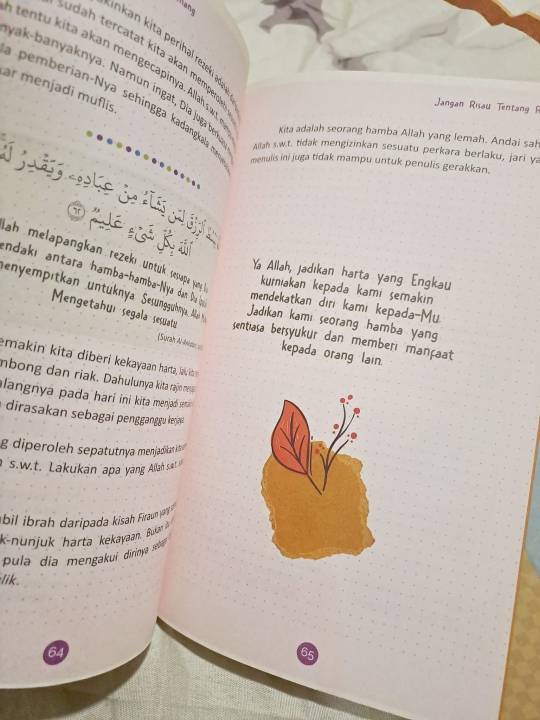 kinkan kita perihal rezeki
sudah tercatat kita akan memperoleh
tentu kita akan mengecapinya. Allah s.w.t.
nyak-banyaknya. Namun ingat, Dia juga
pemberian-Nya sehingga kadangkala
menjadi muflis.
الرِّزْقَ لِمَن يَشَاءُ مِنْ عِبَادِهِ وَيَقْدِرُ
اللَّهَ بِكُلِّ شَيْءٍ عَلِيمٌ ٦٢
melapangkan rezeki untuk sesiapa yang
endaki antara hamba-hamba-Nya dan Dia
menyempitkan untuknya. Sesungguhnya, Allah
Mengetahui segala sesuatu.
(Surah
emakin kita diberi kekayaan harta, lalu
mbong dan riak. Dahulunya kita rajin
langnya pada hari ini kita menjadi
dirasakan sebagai pengganggu kerjaya.
g diperoleh sepatutnya menjadikan
s.w.t. Lakukan apa yang Allah s.w.t.
bil ibrah daripada kisah Firaun yang
k-nunjuk harta kekayaan. Bukan
pula dia mengakui dirinya
lik.
64
Jangan Risau Tentang R
Kita adalah seorang hamba Allah yang lemah. Andai sah
Allah s.w.t. tidak mengizinkan sesuatu perkara berlaku, jari ya
menulis ini juga tidak mampu untuk penulis gerakkan.
Ya Allah, jadikan harta yang Engkau
kurniakan kepada kami semakin
mendekatkan diri kami kepada-Mu.
Jadikan kami seorang hamba yang
sentiasa bersyukur dan memberi manfaat
kepada orang lain.
65